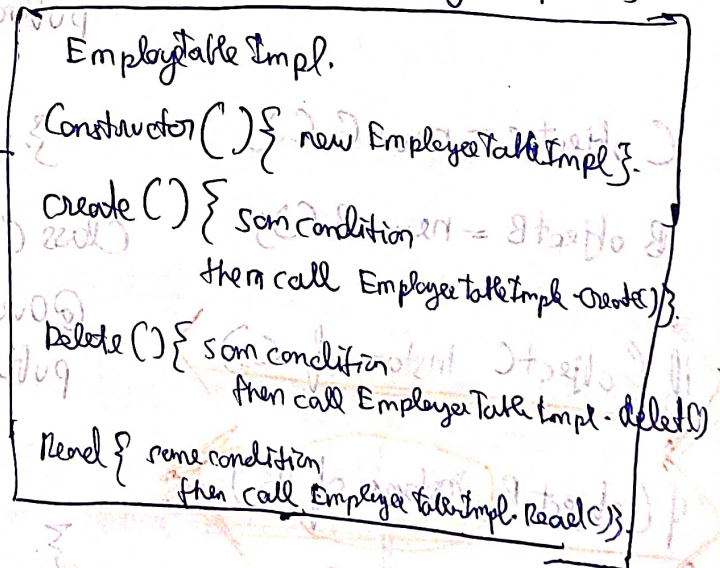 EmployeTable Impl.
Constructor () { new EmployeeTableImpl }.
create () { som condition
then call EmployeeTableImpl.create() }.
Delete () { som condition
then call EmployeeTableImpl.delet()
Read { some condition
then call EmployeeTableImpl.Read() }.